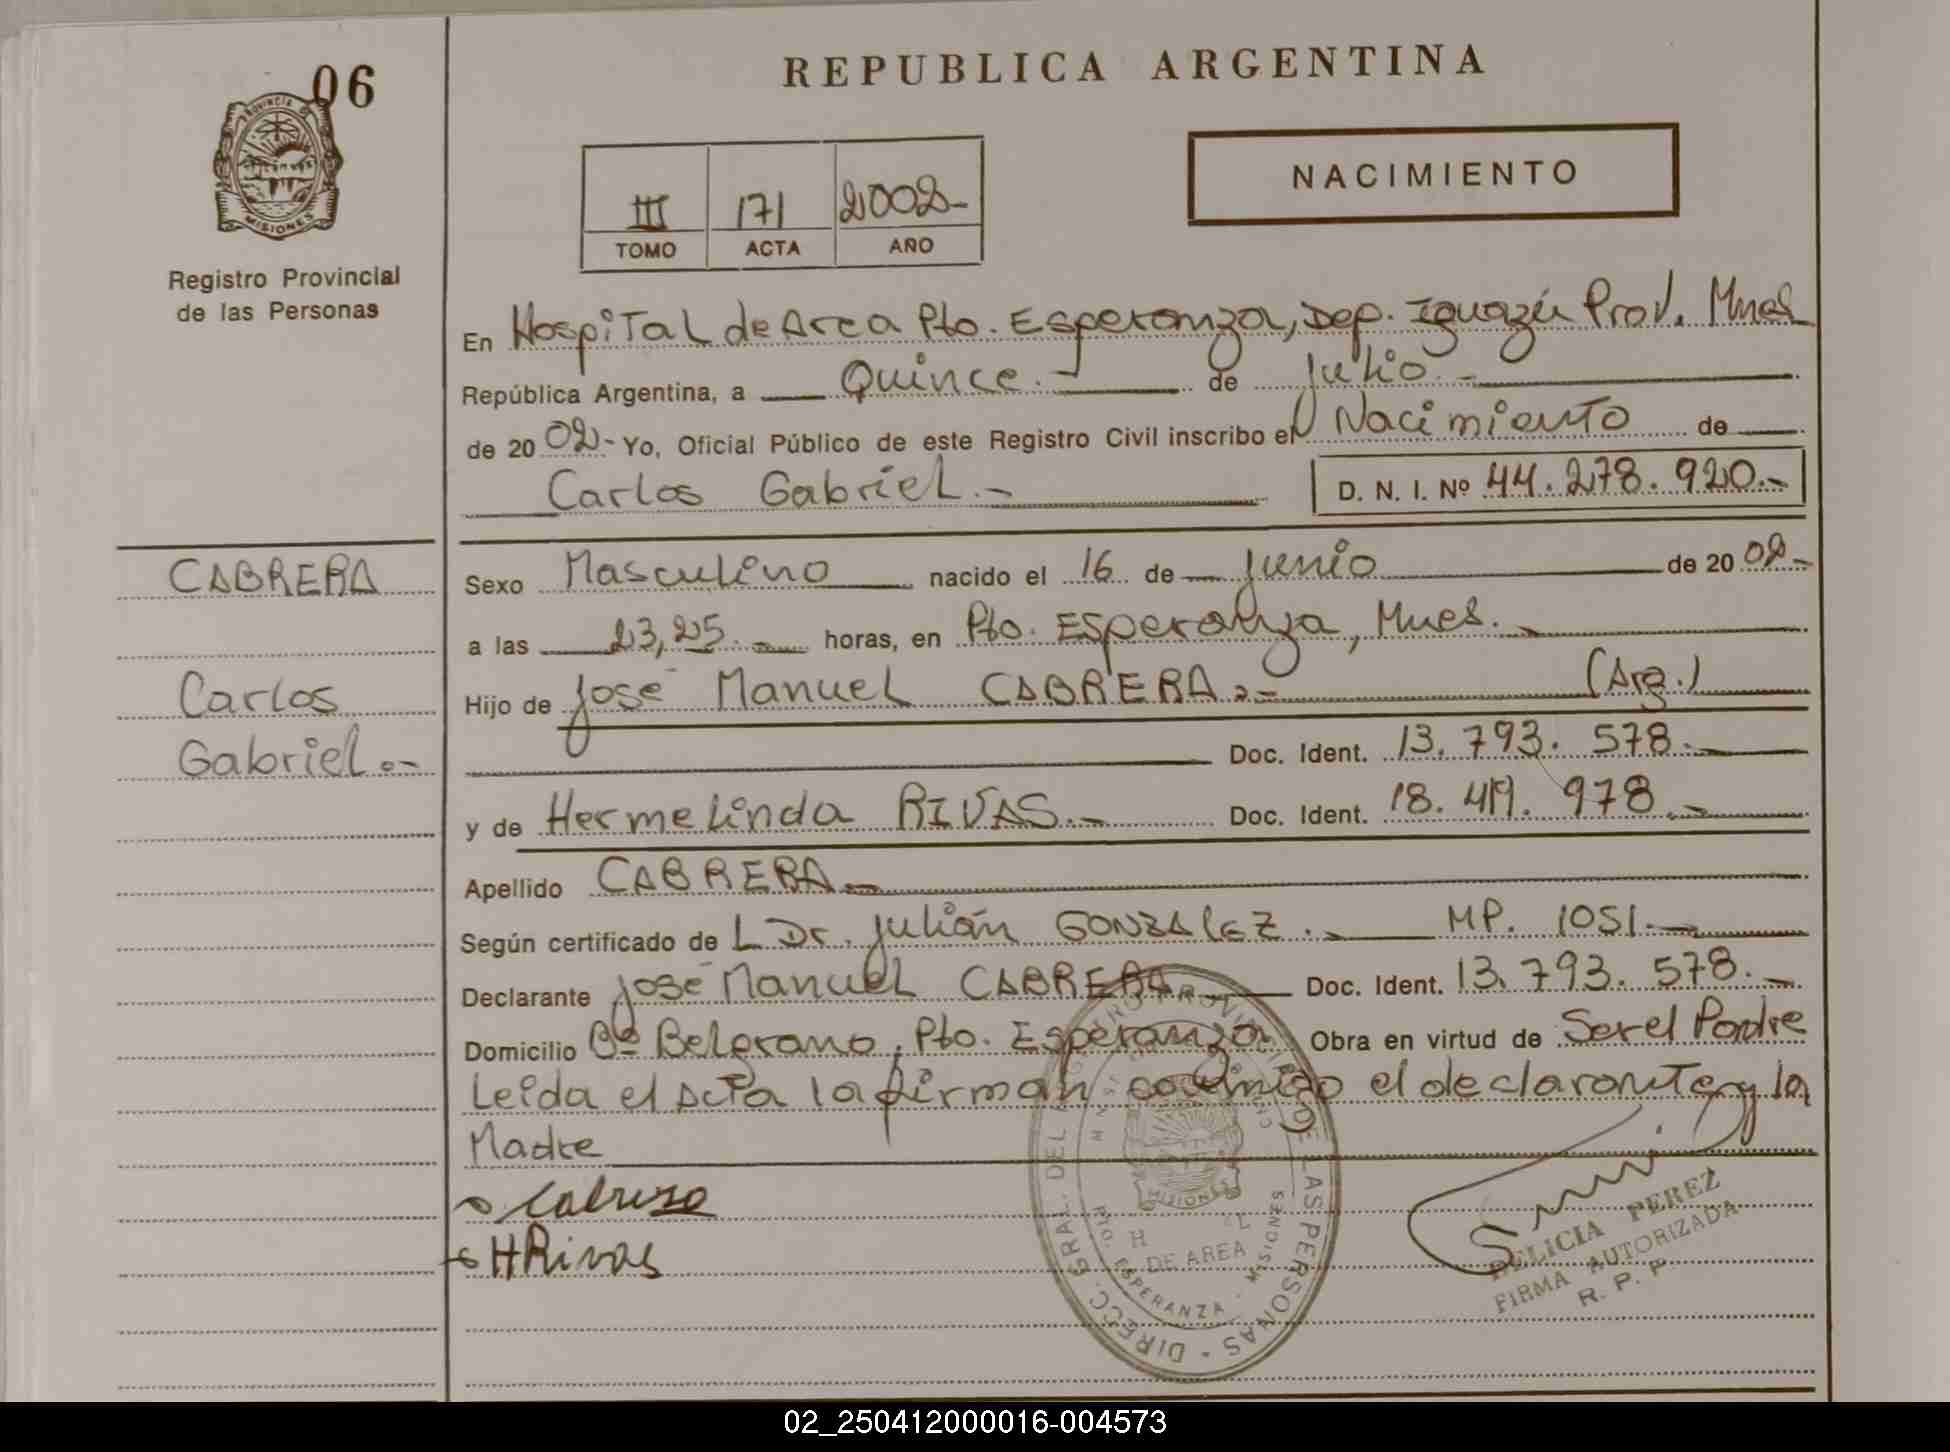 06
REPUBLICA ARGENTINA
PROVINCIA DE
MISIONES
Registro Provincial
de las Personas
NACIMIENTO
III 171 2002-
TOMO ACTA AÑO
En Hospital de Area Pto. Esperanza, Dep. Iguazú Prov. Mnes
República Argentina, a Quince.- de Julio.-
de 2002.- Yo, Oficial Público de este Registro Civil inscribo el Nacimiento de
Carlos Gabriel.- D. N. I. Nº 44.278.920.-
CABRERA
Carlos
Gabriel.-
Sexo Masculino nacido el 16 de Junio de 2002-
a las 23,25.- horas, en Pto. Esperanza, Mnes.-
Hijo de José Manuel CABRERA.- (Arg.)
Doc. Ident. 13.793.578.-
y de Hermelinda RIVAS.- Doc. Ident. 18.419.978.-
Apellido CABRERA.-
Según certificado de L Dr. Julián GONZALEZ.- MP. 1051.-
Declarante José Manuel CABRERA Doc. Ident. 13.793.578.-
Domicilio Bº Belgrano, Pto. Esperanza Obra en virtud de Ser el Padre
Leida el Acta la firman conmigo el declarante y la
Madre
Cabrera
HRivas
DIRECC. GRAL. DEL REGISTRO PROVINCIAL DE LAS PERSONAS
MISIONES
DE AREA
PTO. ESPERANZA - MISIONES
DELICIA PEREZ
FIRMA AUTORIZADA
R. P. P.
02_250412000016-004573